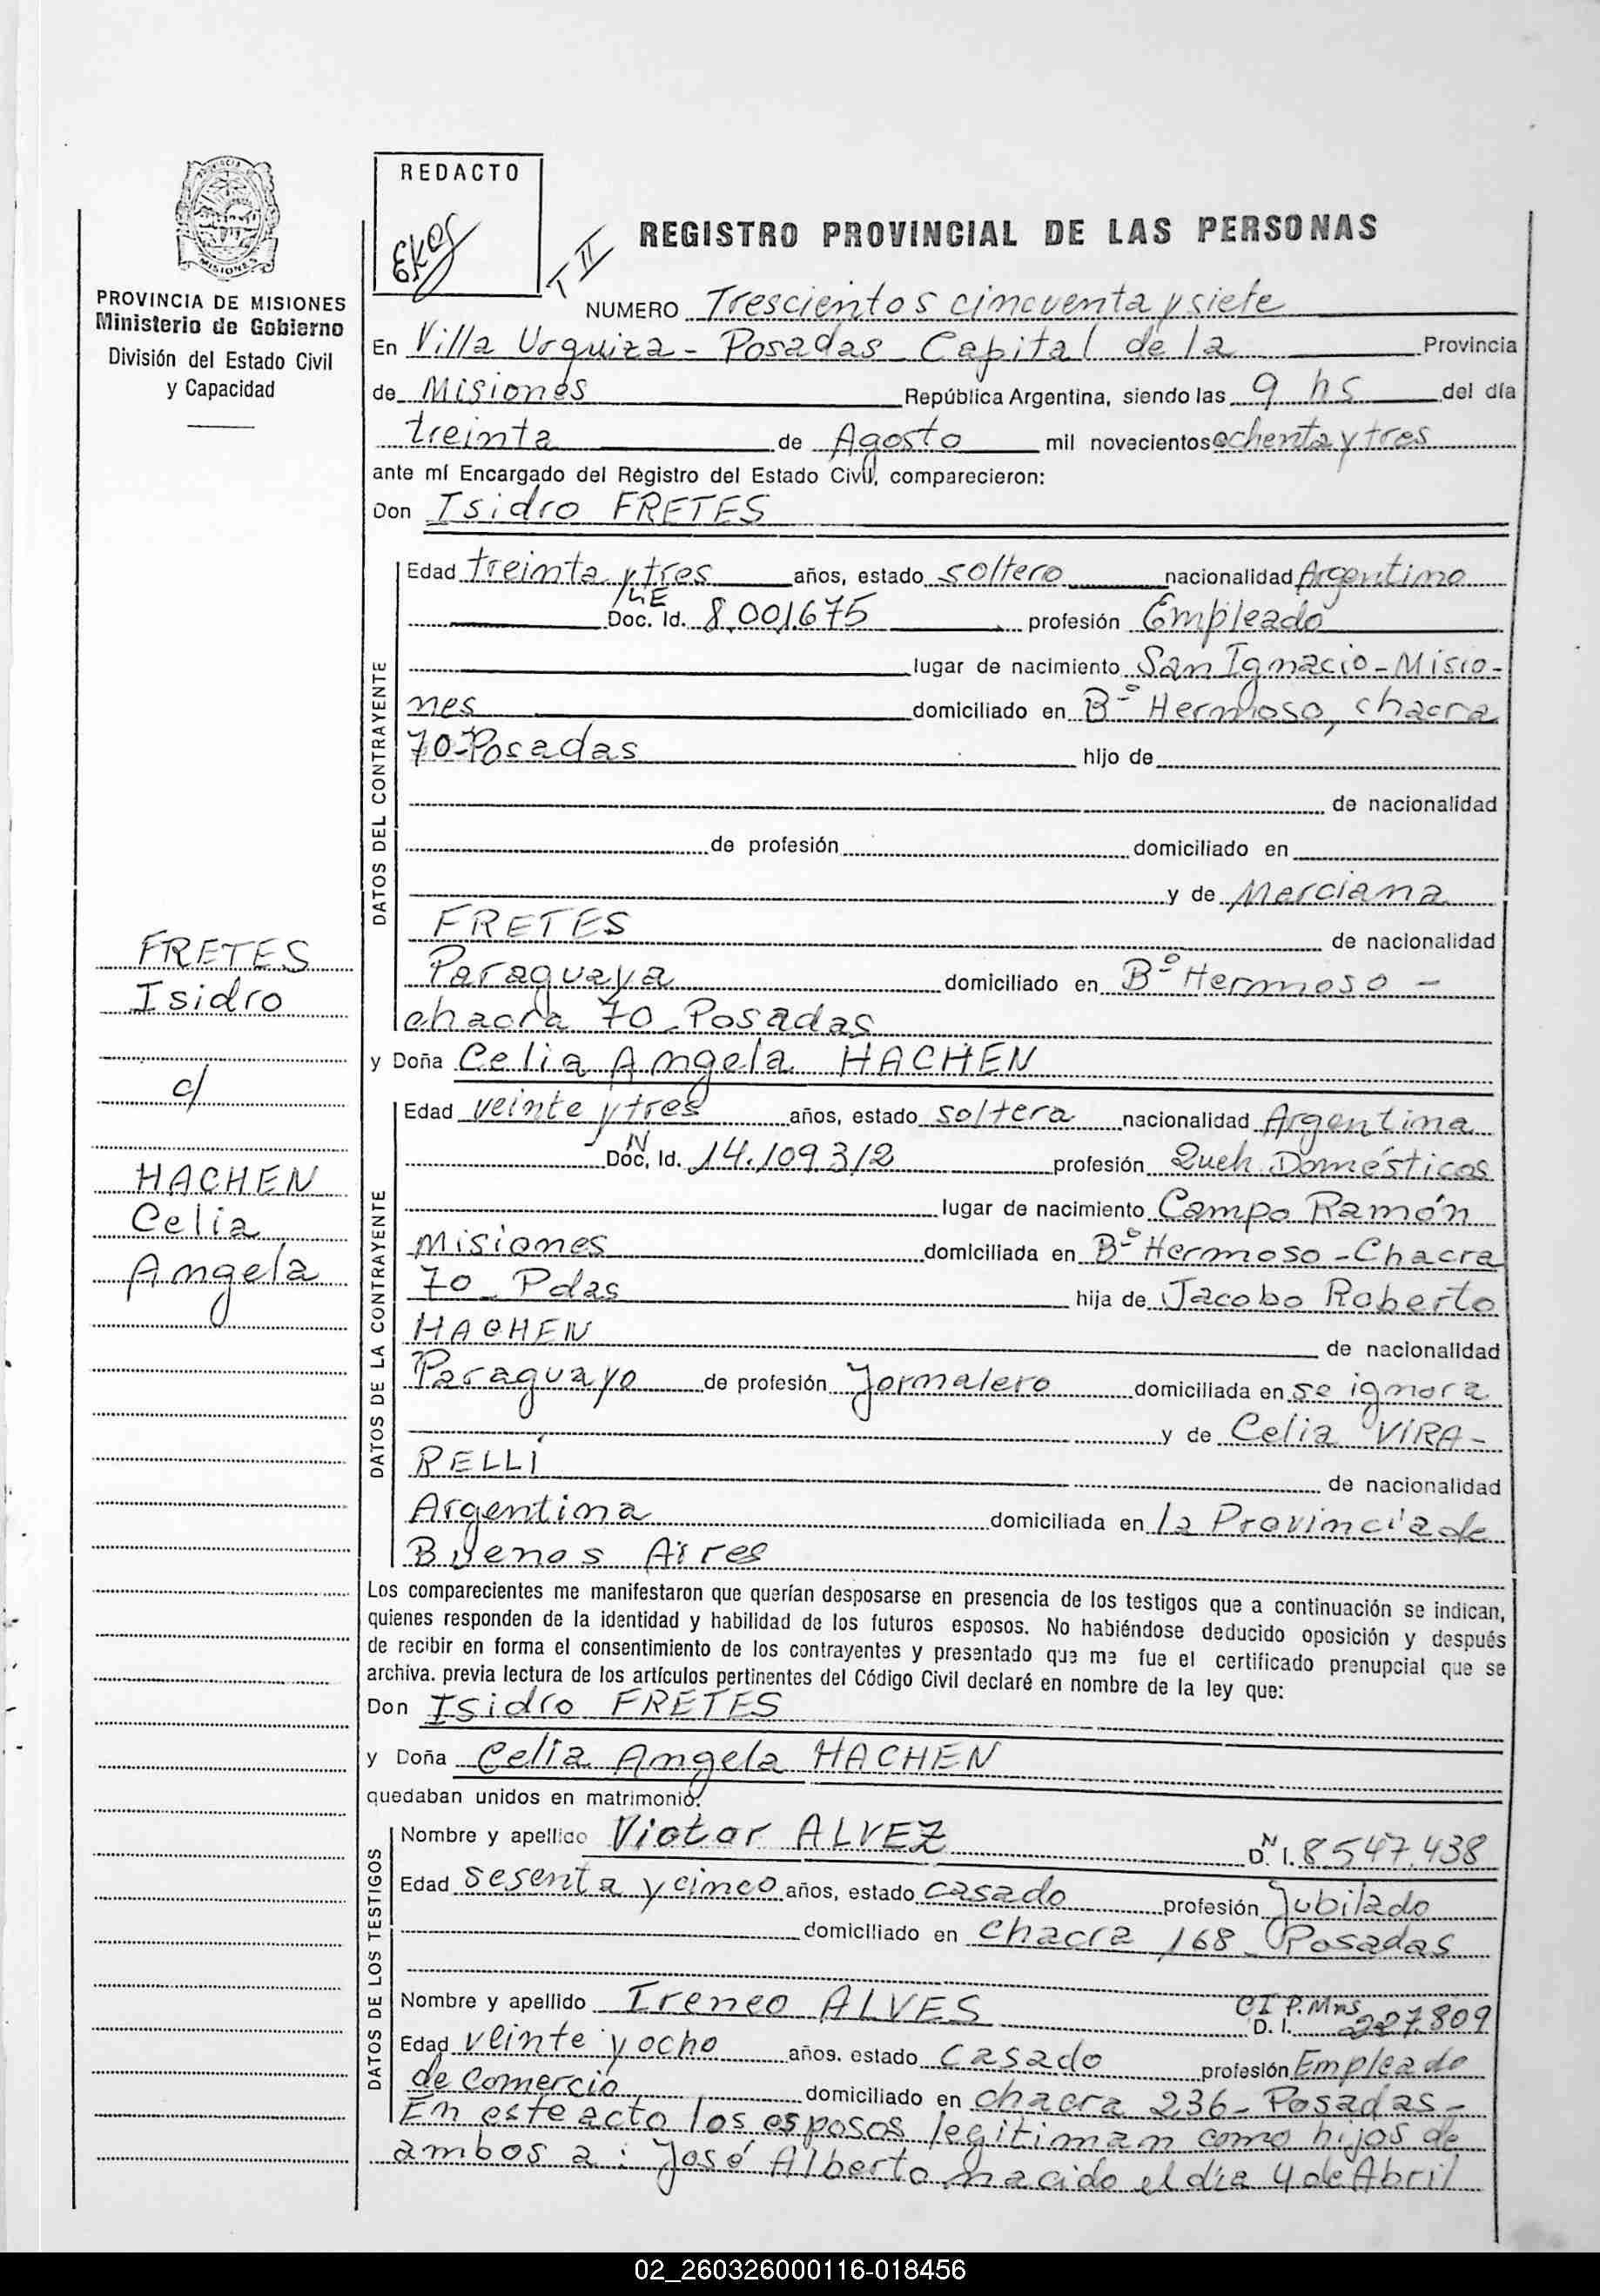 REDACTO
T II
REGISTRO PROVINCIAL DE LAS PERSONAS
MISIONES
PROVINCIA DE MISIONES
Ministerio de Gobierno
División del Estado Civil
y Capacidad
NUMERO Trescientos cincuenta y siete
En Villa Urquiza - Posadas Capital de la Provincia
de Misiones República Argentina, siendo las 9 hs del día
treinta de Agosto mil novecientos ochenta y tres
ante mí Encargado del Régistro del Estado Civil, comparecieron:
Don Isidro FRETES
DATOS DEL CONTRAYENTE
Edad treinta y tres años, estado soltero nacionalidad Argentino
LE
Doc. Id. 8.001.675 profesión Empleado
lugar de nacimiento San Ignacio - Misio-
nes domiciliado en Bº Hermoso, chacra
70-Posadas hijo de
de nacionalidad
de profesión domiciliado en
y de Merciana
FRETES de nacionalidad
Paraguaya domiciliado en Bº Hermoso -
chacra 70 - Posadas
y Doña Celia Angela HACHEN
FRETES
Isidro
c/
HACHEN
Celia
Angela
DATOS DE LA CONTRAYENTE
Edad veinte y tres años, estado soltera nacionalidad Argentina
N
Doc. Id. 14.109312 profesión Queh. Domésticos
lugar de nacimiento Campo Ramón
Misiones domiciliada en Bº Hermoso - Chacra
70 - Pdas hija de Jacobo Roberto
HACHEN de nacionalidad
Paraguayo de profesión Jornalero domiciliada en se ignora
y de Celia VIRA-
RELLI de nacionalidad
Argentina domiciliada en la Provincia de
Buenos Aires
Los comparecientes me manifestaron que querían desposarse en presencia de los testigos que a continuación se indican,
quienes responden de la identidad y habilidad de los futuros esposos. No habiéndose deducido oposición y después
de recibir en forma el consentimiento de los contrayentes y presentado que me fue el certificado prenupcial que se
archiva. previa lectura de los artículos pertinentes del Código Civil declaré en nombre de la ley que:
Don Isidro FRETES
y Doña Celia Angela HACHEN
quedaban unidos en matrimonio.
DATOS DE LOS TESTIGOS
Nombre y apellido Victor ALVEZ D.N.I. 8.547.438
Edad sesenta y cinco años, estado casado profesión Jubilado
domiciliado en chacra 168 - Posadas
Nombre y apellido Ireneo ALVES CI P. Mnes
D. I. 227.809
Edad veinte y ocho años. estado casado profesión Empleado
de Comercio domiciliado en chacra 236 - Posadas -
En este acto los esposos legitiman como hijos de
ambos a: José Alberto nacido el día 4 de Abril
02_260326000116-018456